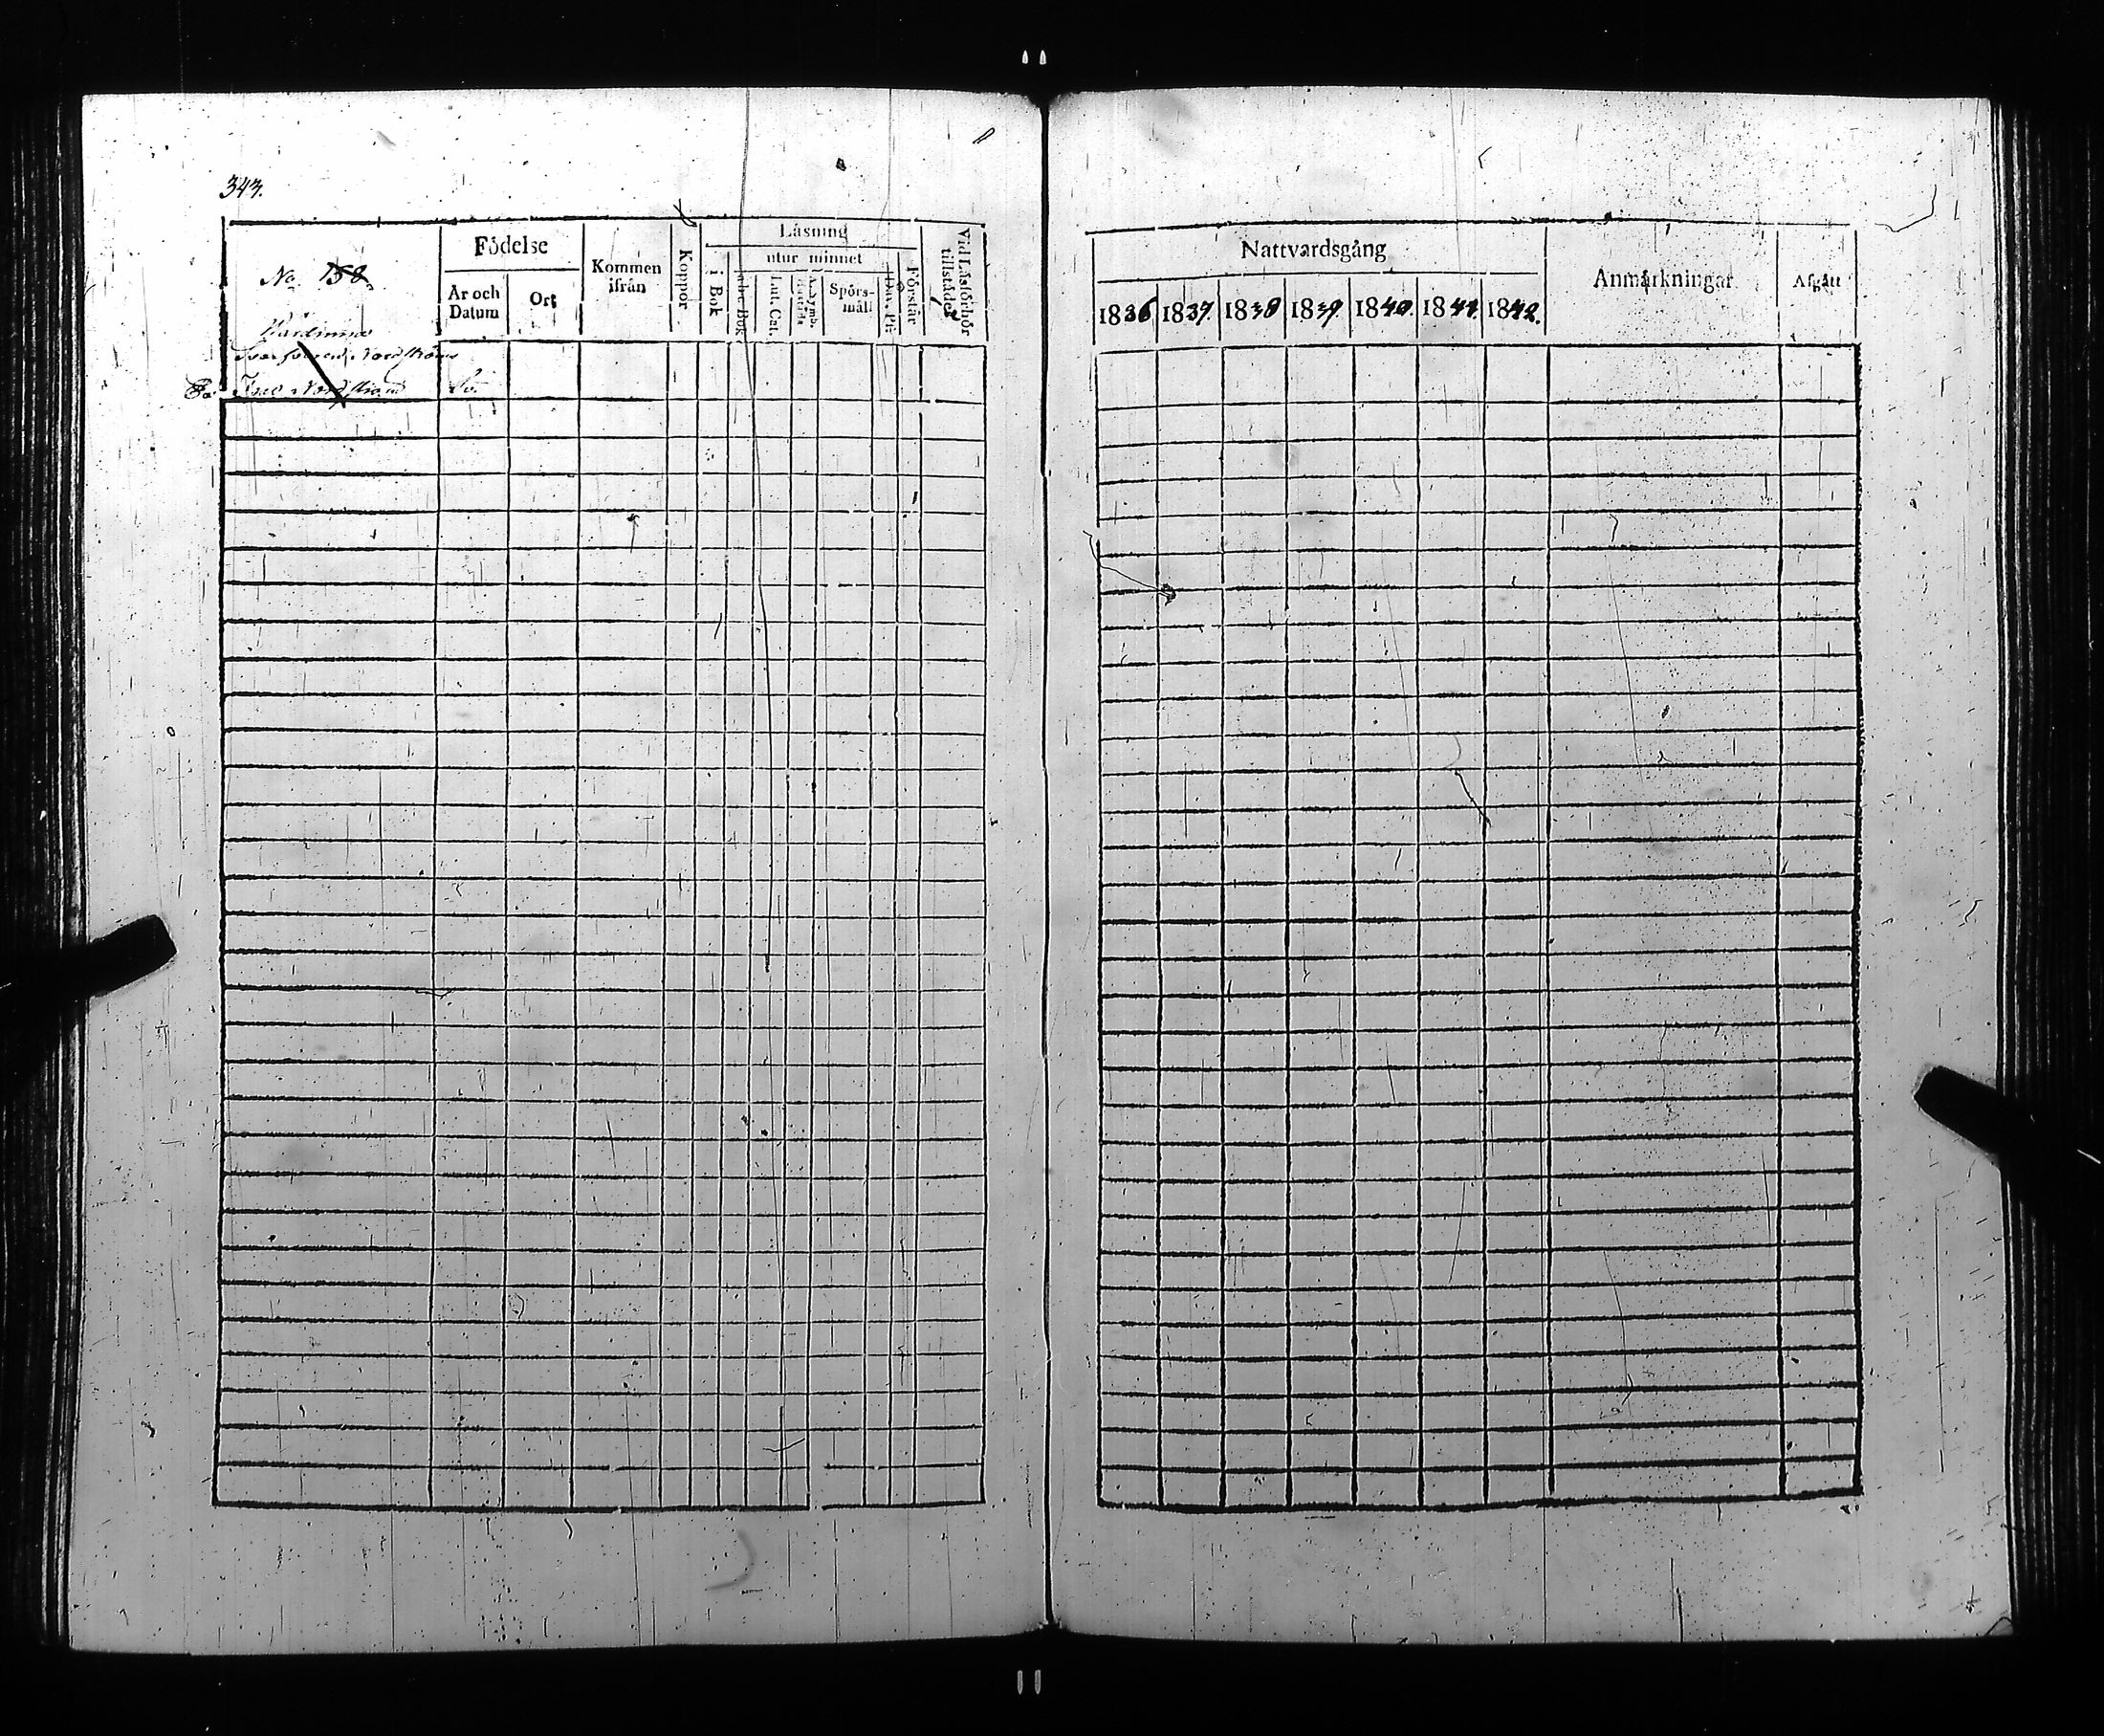 343.
No 158.
Födelse
År och Datum
Ort
Kommen ifrån
Koppor
Läsning
utur minnet
i Bok
Abc Bok
Lut. Cat.
Spörs-mål
Dav. Ps.
Förstår
Vid Läsförhör tillstädes
Nordström
Nattvardsgång
1836 1837. 1838 1839 1840. 1841. 1842.
Anmärkningar
Afgått